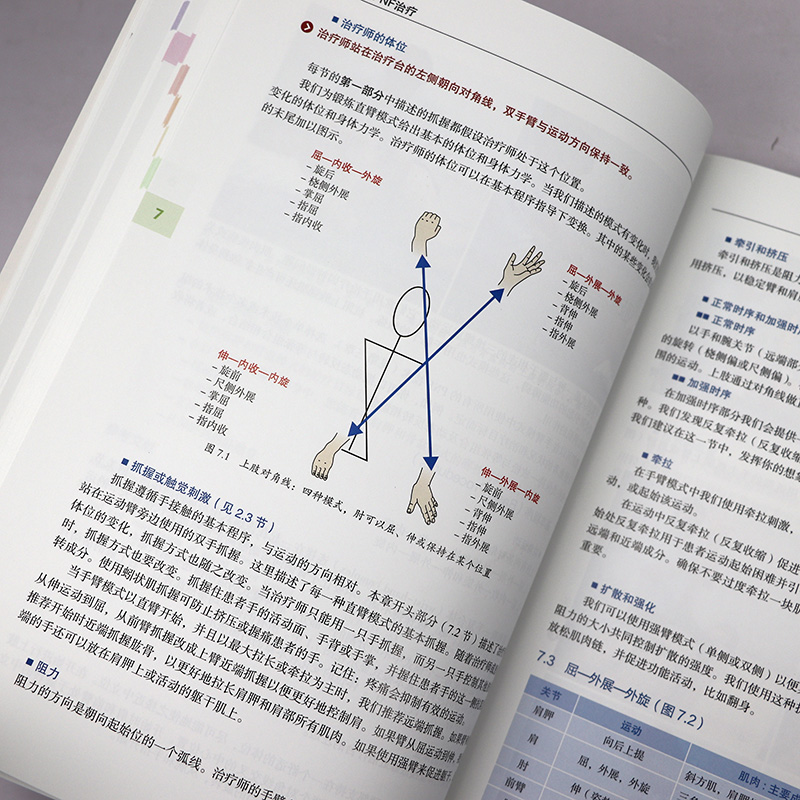 NF治疗
■ 治疗师的体位
治疗师站在治疗台的左侧朝向对角线，双手臂与运动方向保持一致。
每节的第一部分中描述的抓握都假设治疗师处于这个位置。
我们为锻炼直臂模式给出基本的体位和身体力学。当我们描述的模式有变化时，
变化的体位和身体力学。治疗师的体位可以在基本程序指导下变换。其中的某些变化
的末尾加以图示。
7
屈—内收—外旋
- 旋后
- 桡侧外展
- 掌屈
- 指屈
- 指内收
屈—外展—外旋
- 旋后
- 桡侧外展
- 背伸
- 指伸
- 指外展
伸—内收—内旋
- 旋前
- 尺侧外展
- 掌屈
- 指屈
- 指内收
伸—外展—内旋
- 旋前
- 尺侧外展
- 背伸
- 指伸
- 指外展
图 7.1 上肢对角线：四种模式，肘可以屈、伸或保持在某个位置
■ 抓握或触觉刺激（见 2.3 节）
抓握遵循手接触的基本程序，与运动的方向相对。本章开头部分（7.2 节）描述了
站在运动臂旁边使用的双手抓握。这里描述了每一种直臂模式的基本抓握。随着治疗师或
体位的变化，抓握方式也随之改变。当治疗师只能用一只手抓握，而另一只手控制其他
时，抓握方式也要改变。抓握住患者手的活动面、手背或手掌，并握住患者手的这一侧
转成分。使用蚓状肌抓握可防止挤压或握痛患者的手。记住：疼痛会抑制有效的运动。
当手臂模式以直臂开始，并且以最大拉长或牵拉为主时，我们推荐远端抓握。如果臂
从伸运动到屈，从前臂抓握改成上臂近端抓握以便更好地控制肩。如果臂从屈运动到伸，
推荐开始时近端抓握肱骨，以更好地拉长肩胛和肩部所有肌肉。如果使用强臂来促进躯干，
端的手还可以放在肩胛上或活动的躯干肌上。
■ 阻力
阻力的方向是朝向起始位的一个弧线。治疗师的手臂
■ 牵引和挤压
牵引和挤压是阻力
用挤压，以稳定臂和肩
■ 正常时序和加强时
■■ 正常时序
以手和腕关节（远端部分
的旋转（桡侧偏或尺侧偏）。
围的运动。上肢通过对角线做
■■ 加强时序
在加强时序部分我们会提供一
种。我们发现反复牵拉（反复收缩
我们建议在这一节中，发挥你的想象
■ 牵拉
在手臂模式中我们使用牵拉刺激，
动，或起始该运动。
在运动中反复牵拉（反复收缩）促进
始处反复牵拉用于患者运动起始困难并引
远端和近端成分。确保不要过度牵拉一块肌
重要。
■ 扩散和强化
我们可以使用强臂模式（单侧或双侧）以便
阻力的大小共同控制扩散的强度。我们使用这种
放松肌肉链，并促进功能活动，比如翻身。
7.3 屈—外展—外旋（图 7.2）
关节 运动 肌肉：主要成
肩胛 向后上提 斜方肌，肩胛
肩 屈，外展，外旋
肘
前臂